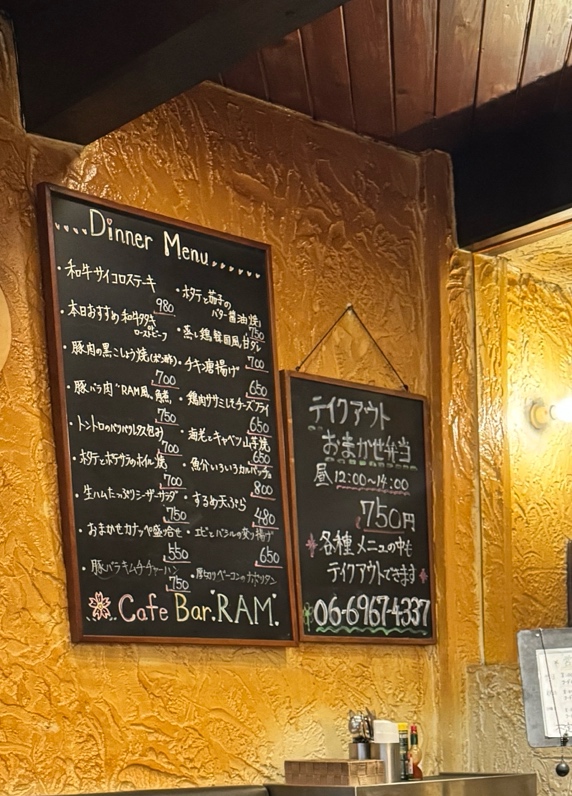 Dinner Menu
・和牛サイコロステーキ
980
・本日おすすめ和牛タタキ
or
ローストビーフ
・豚肉の黒こしょう焼(ポン酢)
700
・豚バラ肉"RAM風"角煮
750
・トントロのパリパリレタス包み
700
・ホタテとポテサラのホイル焼
700
・生ハムたっぷりシーザーサラダ
750
・おまかせカナッペ盛合せ
550
・豚バラキムチチャーハン
750
・ホタテと茄子の
バター醤油焼
750
・蒸し鶏韓国風甘ダレ
700
・チキン唐揚げ
650
・鶏肉ササミしそチーズフライ
650
・海老とキャベツ山芋焼
650
・魚介いろいろカルパッチョ
800
・するめ天ぷら
480
・エビとバジルの変り揚げ
650
・厚切りベーコンのナポリタン
Cafe Bar. RAM.
テイクアウト
おまかせ弁当
昼12:00~14:00
750円
各種メニューの中も
テイクアウトできます
06-6967-4337